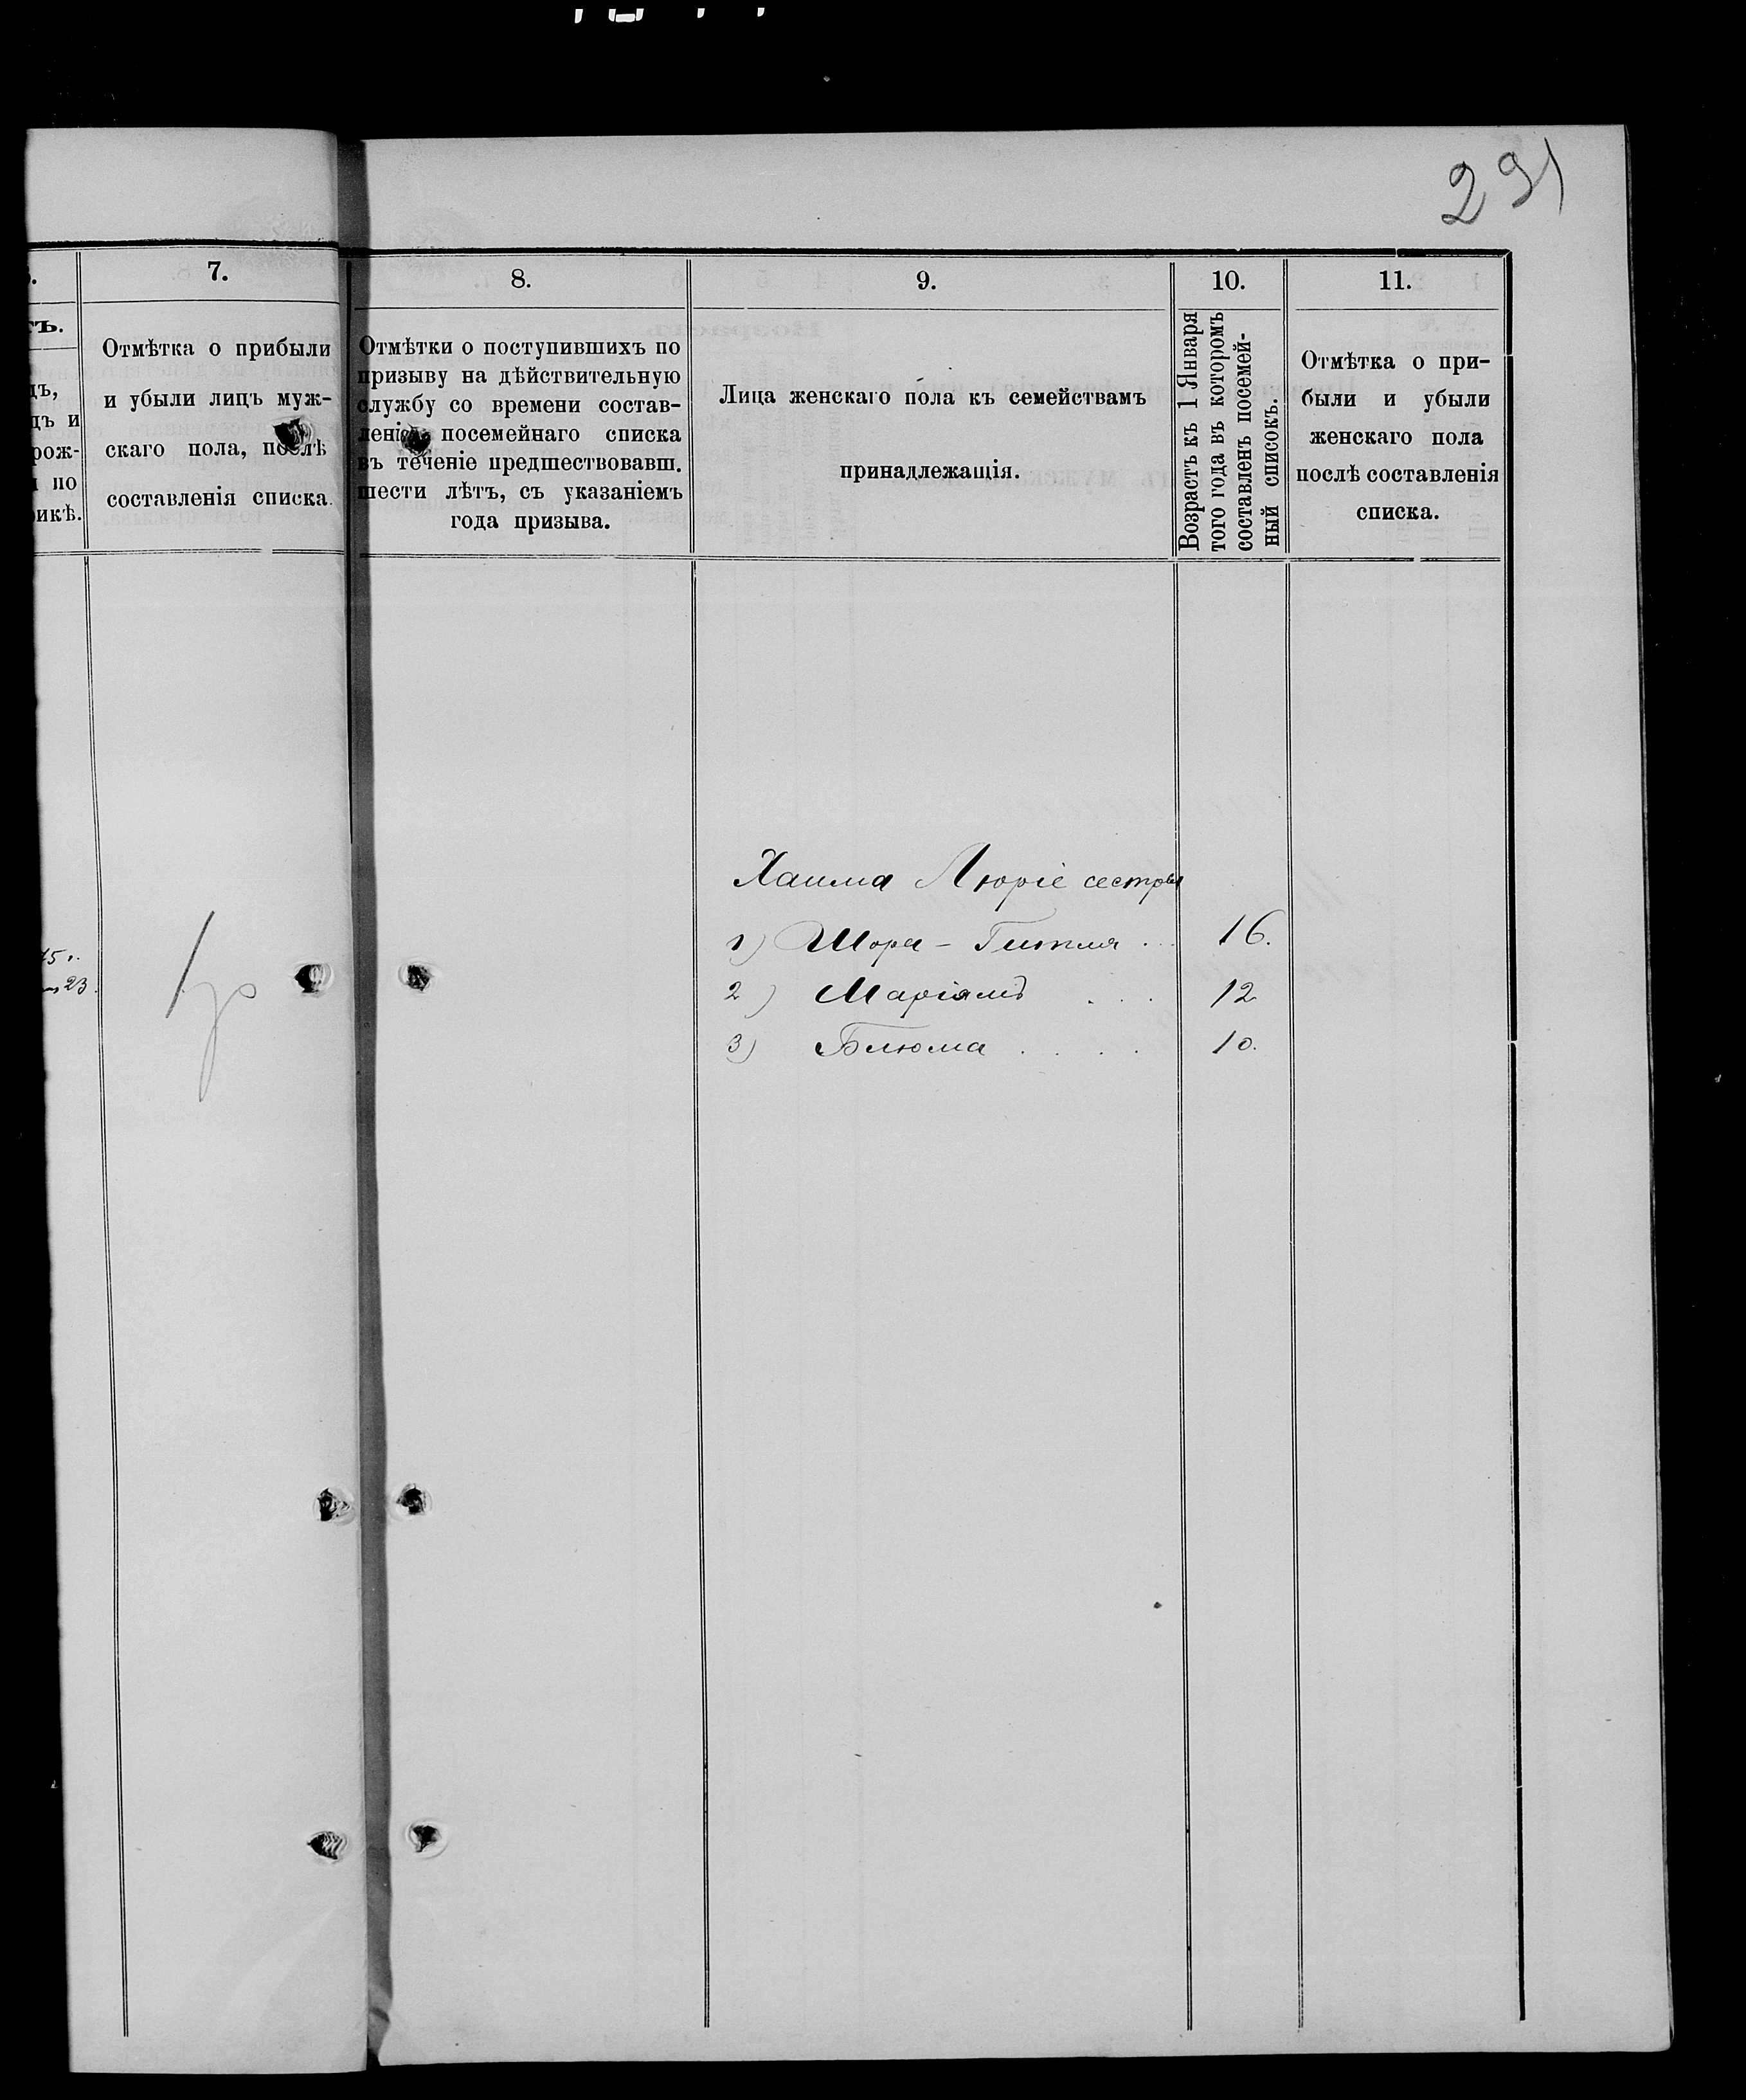 291
7.
8.
9.
10.
11.
тъ.
дъ,
дъ и
рож-
по
рикѣ.
Отмѣтка о прибыли
и убыли лицъ муж-
скаго пола, послѣ
составленія списка.
Отмѣтки о поступившихъ по
призыву на дѣйствительную
службу со времени состав-
ленія посемейнаго списка
въ теченіе предшествовавш.
шести лѣтъ, съ указаніемъ
года призыва.
Лица женскаго пола къ семействамъ
принадлежащія.
Возрастъ къ 1 Января
того года въ которомъ
составленъ посемей-
ный списокъ.
Отмѣтка о при-
были и убыли
женскаго пола
послѣ составленія
списка.
Хаима Люріе сестры
1) Шора - Гитля . . 16.
2) Маріямъ . . . 12
3) Блюма . . . . 10.
75 г.
23.